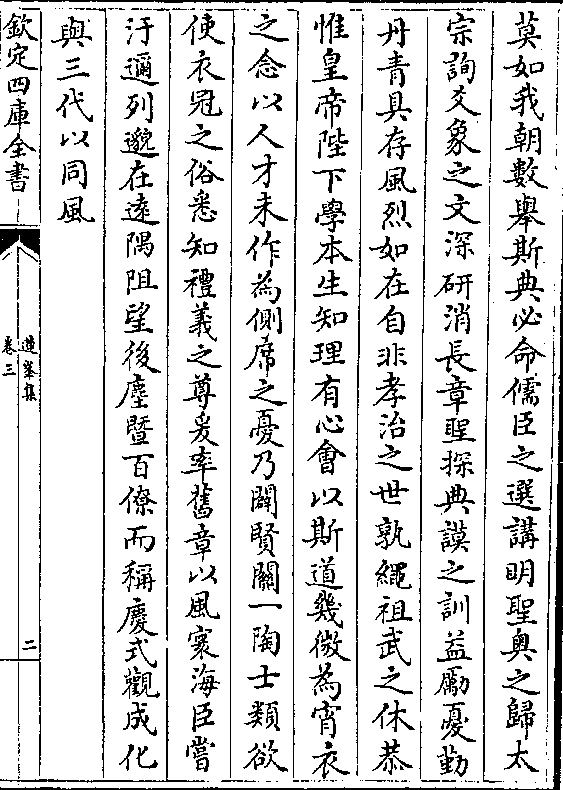 莫如我朝數舉斯典必命儒臣之選講明聖奥之歸太
宗詢爻象之文深研消長章聖探典謨之訓益勵憂勤
丹青具存風烈如在自非孝治之世孰繩祖武之休恭
惟皇帝陛下學本生知理有心會以斯道幾微為宵衣
之念以人才未作為側席之憂乃闢賢關一陶士類欲
使衣冠之俗悉知禮義之尊爰率舊章以風寰海臣嘗
汙邇列邈在遠隅阻望後塵暨百僚而稱慶式觀成化
與三代以同風
欽定四庫全書
卷三
二